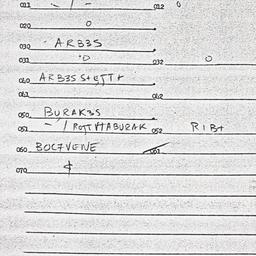 011 - / - 012 0
020 0
030 - ARB3S
031 0 032 0
040 ARB3S S+ETT+
041 042
050 BURAK3S
051 - / 052 RIB+
060 BOC7VENE 061
070